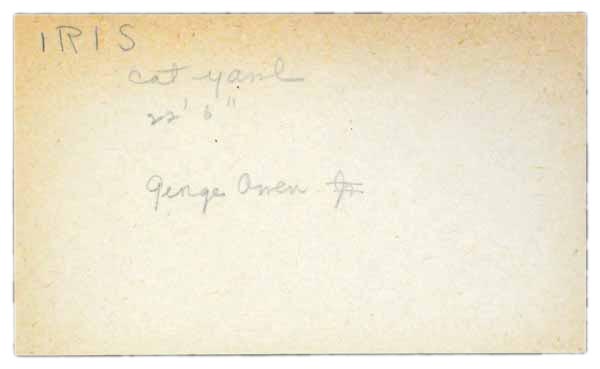 IRIS
cat yawl
22' 6"
George Owen Jr